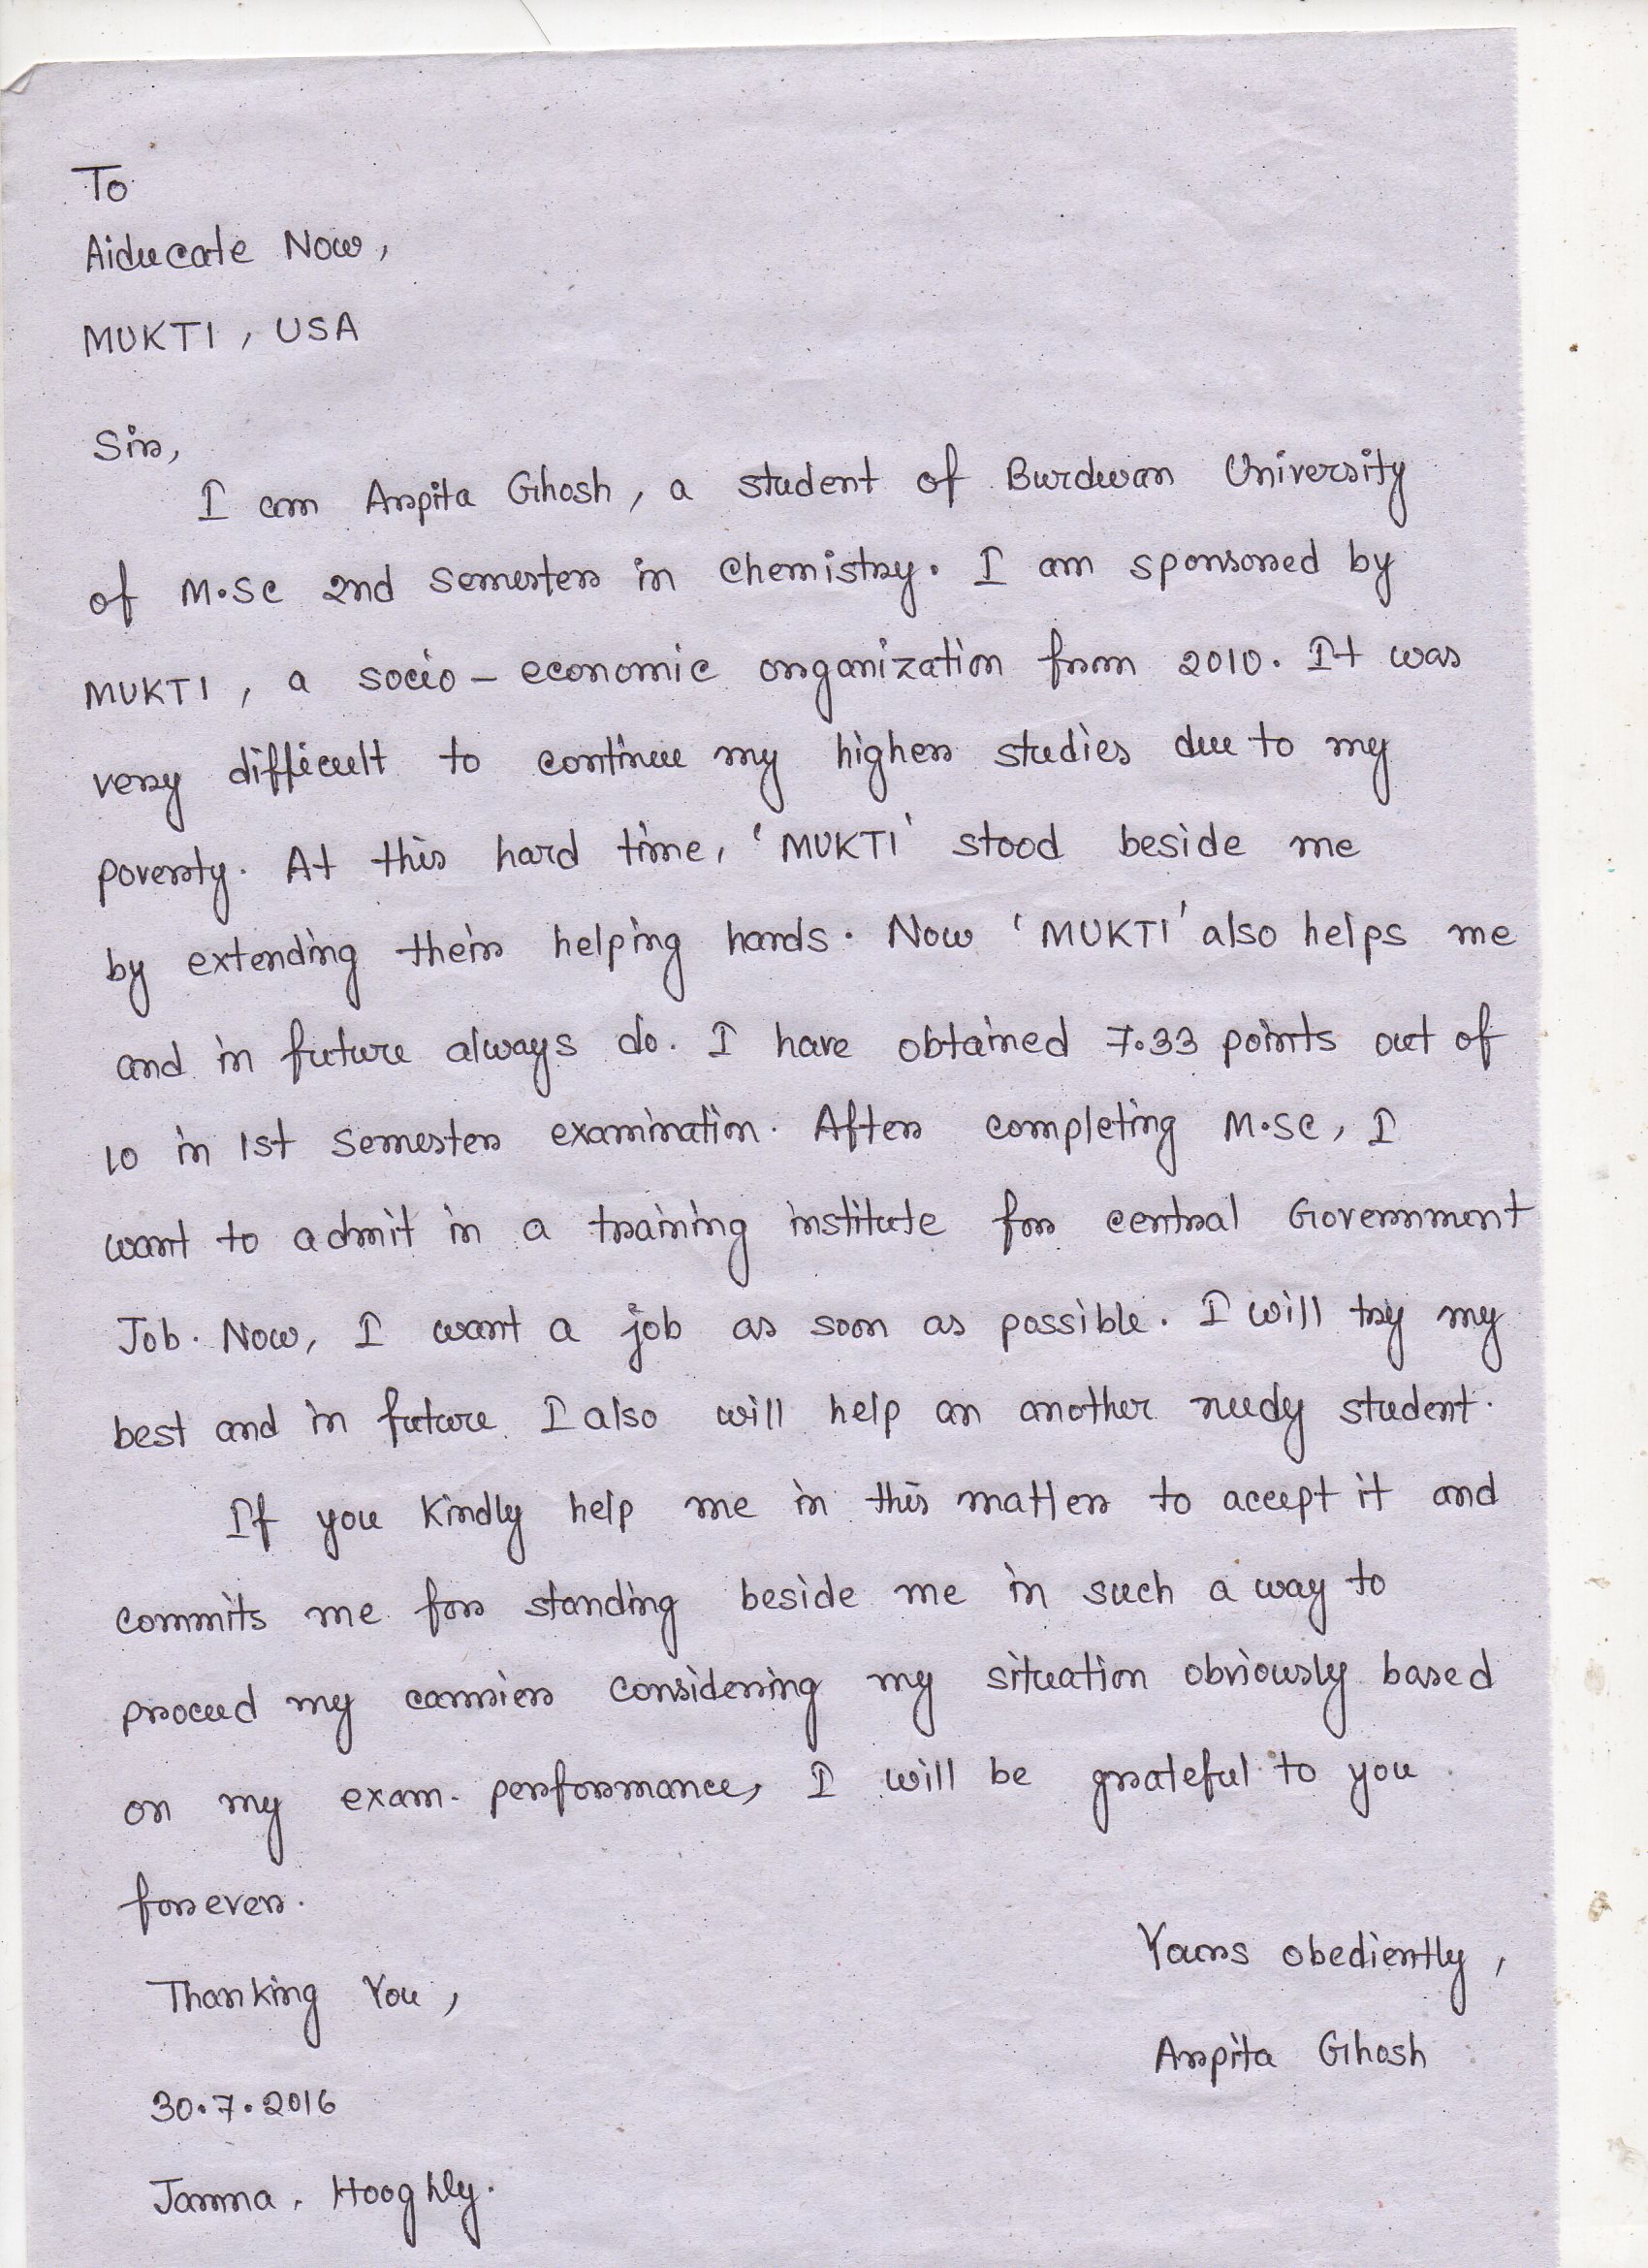 To
Aiducate Now,
MUKTI, USA
Sir,
I am Arpita Ghosh, a student of Burdwan University
of M.Sc 2nd Semester in Chemistry. I am sponsored by
MUKTI, a socio-economic organization from 2010. It was
very difficult to continue my higher studies due to my
poverty. At this hard time, 'MUKTI' stood beside me
by extending their helping hands. Now 'MUKTI' also helps me
and in future always do. I have obtained 7.33 points out of
10 in 1st Semester examination. After completing M.Sc, I
want to admit in a training institute for central Government
Job. Now, I want a job as soon as possible. I will try my
best and in future I also will help an another needy student.
If you kindly help me in this matter to accept it and
commits me for standing beside me in such a way to
proceed my carrier considering my situation obviously based
on my exam. performance, I will be grateful to you
forever.
Yours obediently,
Arpita Ghosh
Thanking You,
30.7.2016
Hooghly.